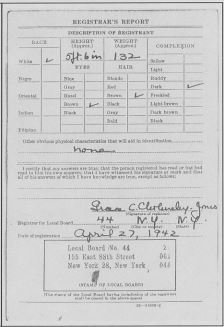 REGISTRAR'S REPORT
DESCRIPTION OF REGISTRANT
RACE HEIGHT (Approx.) WEIGHT (Approx.) COMPLEXION
5 ft. 6 in 132
White ✓ EYES HAIR Sallow
Light
Negro Blue Blonde Ruddy
Gray Red Dark ✓
Oriental Hazel Brown ✓ Freckled
Brown ✓ Black Light brown
Indian Black Gray Dark brown
Bald Black
Filipino
Other obvious physical characteristics that will aid in identification
none
I certify that my answers are true; that the person registered has read or has had
read to him his own answers; that I have witnessed his signature or mark and that
all of his answers of which I have knowledge are true, except as follows:
Jones
(Signature of registrar)
Registrar for Local Board 44 N.Y. N.Y.
(Number) (City or county) (State)
Date of registration April 27, 1942
Local Board No. 44 2
155 East 88th Street 061
New York 28, New York 044
(STAMP OF LOCAL BOARD)
(The stamp of the Local Board having jurisdiction of the registrant
shall be placed in the above space)